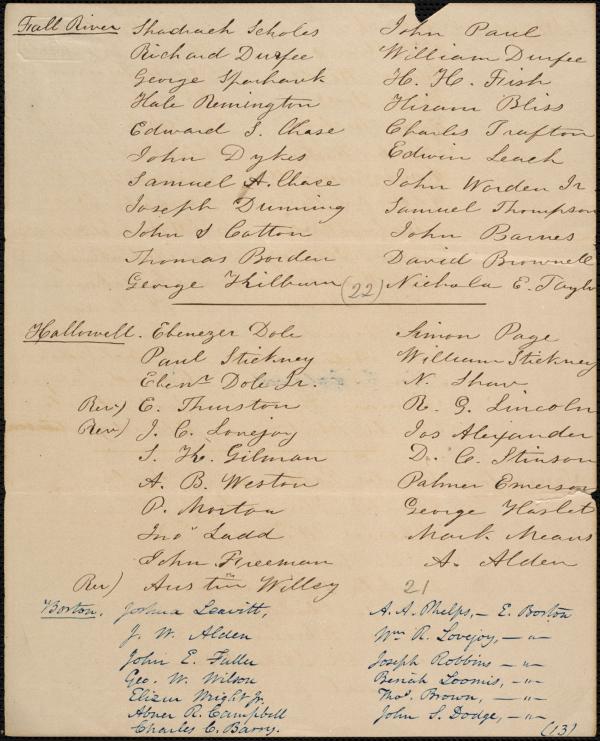 Fall River Shadrach Scholes John Paul
Richard Durfee William Durfee
George Sparhawk H. H. Fish
Hale Remington Hiram Bliss
Edward S. Chase Charles Trafton
John Dykes Edwin Leach
Samuel A. Chase John Worden Jr.
Joseph Dunning Samuel Thompson
John S Cotton John Barnes
Thomas Borden David Brownell
George Kilburn (22) Nichola E. Taylo
Hallowell. Ebenezer Dole Simon Page
Paul Stickney William Stickney
Eben.r Dole Jr. N. Shaw
Rev) E. Thurston R. G. Lincoln
Rev) J. C. Lovejoy Jos Alexander
S. K. Gilman D. C. Stinson
A. B. Weston Palmer Emerson
P. Morton George Haslet
Jno Ladd Mark Means
John Freeman A. Alden
Rev) Austin Willey 21
Boston. Joshua Leavitt, A. A. Phelps, - E. Boston
J. W. Alden Wm R. Lovejoy, - "-
John E. Fuller Joseph Robbins - "-
Geo. W. Wilson Beriah Loomis, - "-
Elizur Wright Jr. Thos. Brown, - "-
Abner R. Campbell John S. Dodge, - "-
Charles C. Barry. (13)